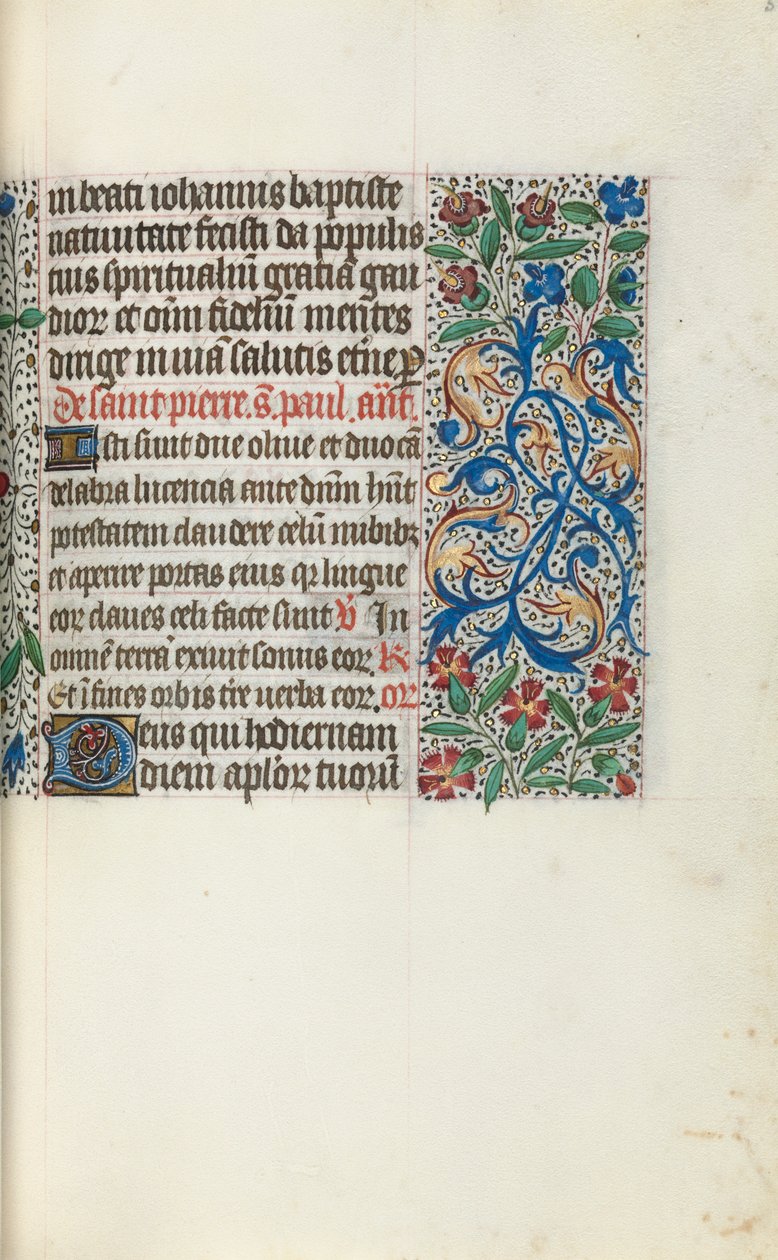 in beati iohannis baptiste
natiuitate fecisti da populis
tuis spiritualiũ gratiã gau
dioꝝ et oĩm fideliũ mentes
dirige in uiã salutis et̃ne ꝑ
De saint pierre. s̃. paul. añt.
Isti sunt due oliue et duo cã
delabra lucencia ante dñm hñt
potestatem claudere celũ nubibꝫ
et aperire portas eius qꝛ lingue
eoꝝ claues celi facte sunt V̉ In
omnẽ terrã exiuit sonus eoꝝ. R̷
Et ĩ fines orbis tr̃e uerba eoꝝ. or̃
Deus qui hodiernam
diem ap̃loꝝ tuoꝝ